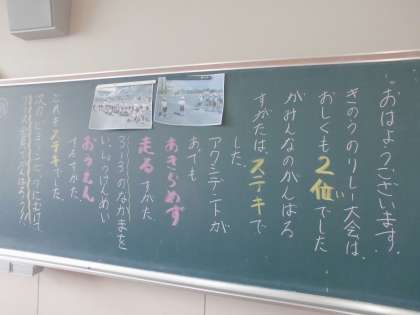 おはようございます。
きのうのリレー大会は、
おしくも2位でした
がみんなのがんばる
すがたは、ステキで
した。
アクシデントが
あっても
あきらめず
走るすがた
3-3のなかまを
いっしょうけんめい
おうえん
するすがた。
これもステキでした。